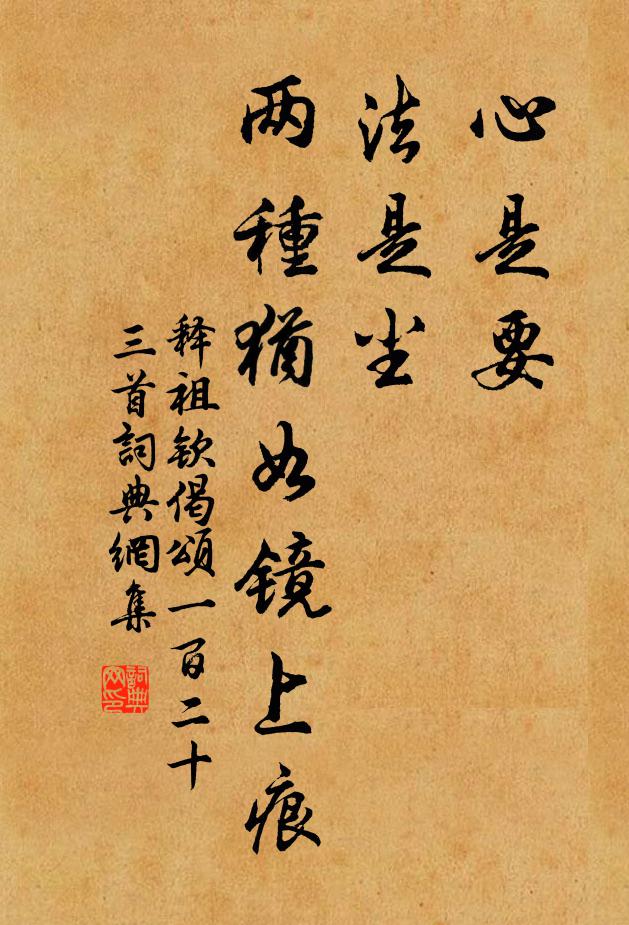 心是要
法是尘
两種猶如镜上痕
释祖钦偈頌一百二十
三首詞典網集
詞典
网印